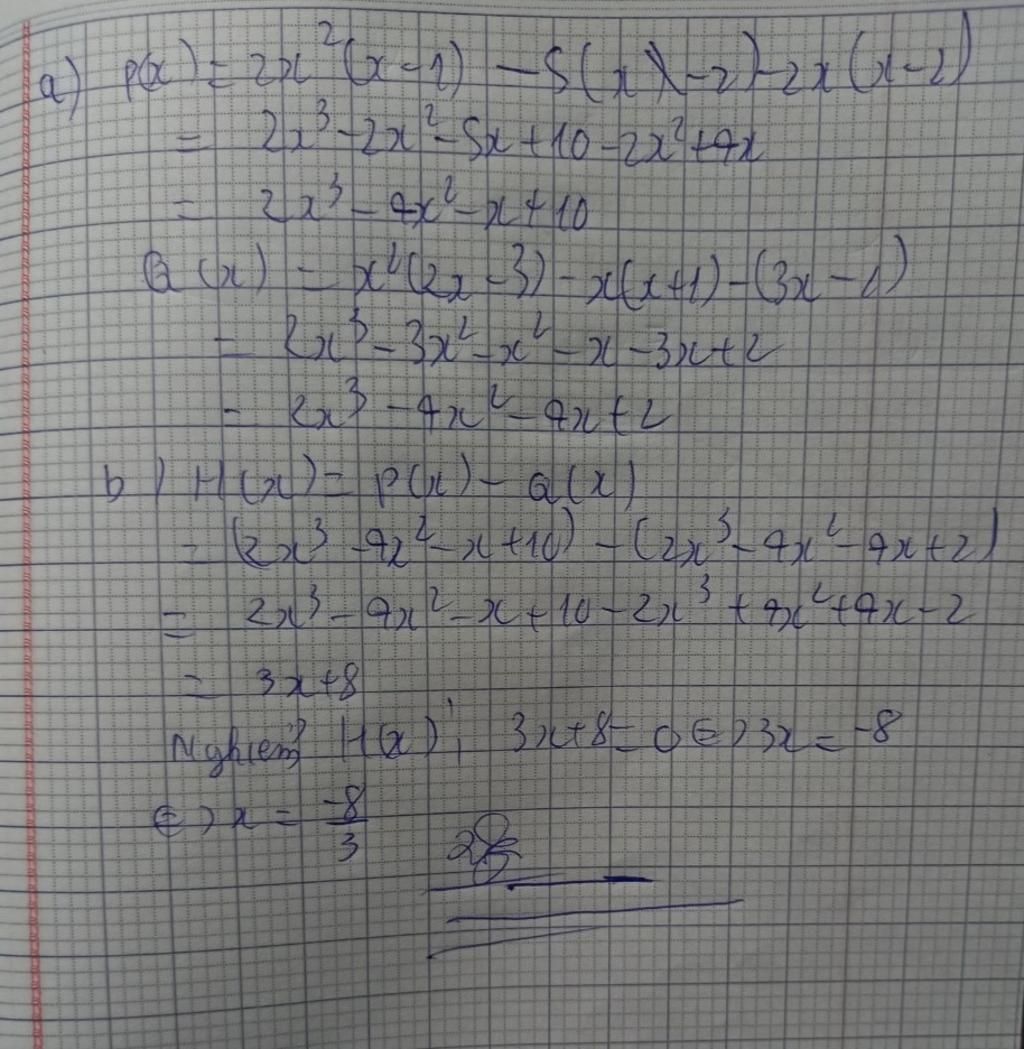 a) P(x) = 2x²(x-1) - 5(x)-2)-2x(x-2)
= 2x³-2x²-5x+10-2x²+4x
= 2x³-4x²-x+10
Q(x) = x²(2x-3)-x(x+1)-(3x-2)
= 2x³-3x²-x²-x-3x+2
= 2x³-4x²-4x+2
b) H(x)= P(x)-Q(x)
= (2x³-4x²-x+10)-(2x³-4x²-4x+2)
= 2x³-4x²-x+10-2x³+4x²+4x-2
= 3x+8
Nghiệm H(x): 3x+8=0 <=> 3x=-8
<=> x = -8/3